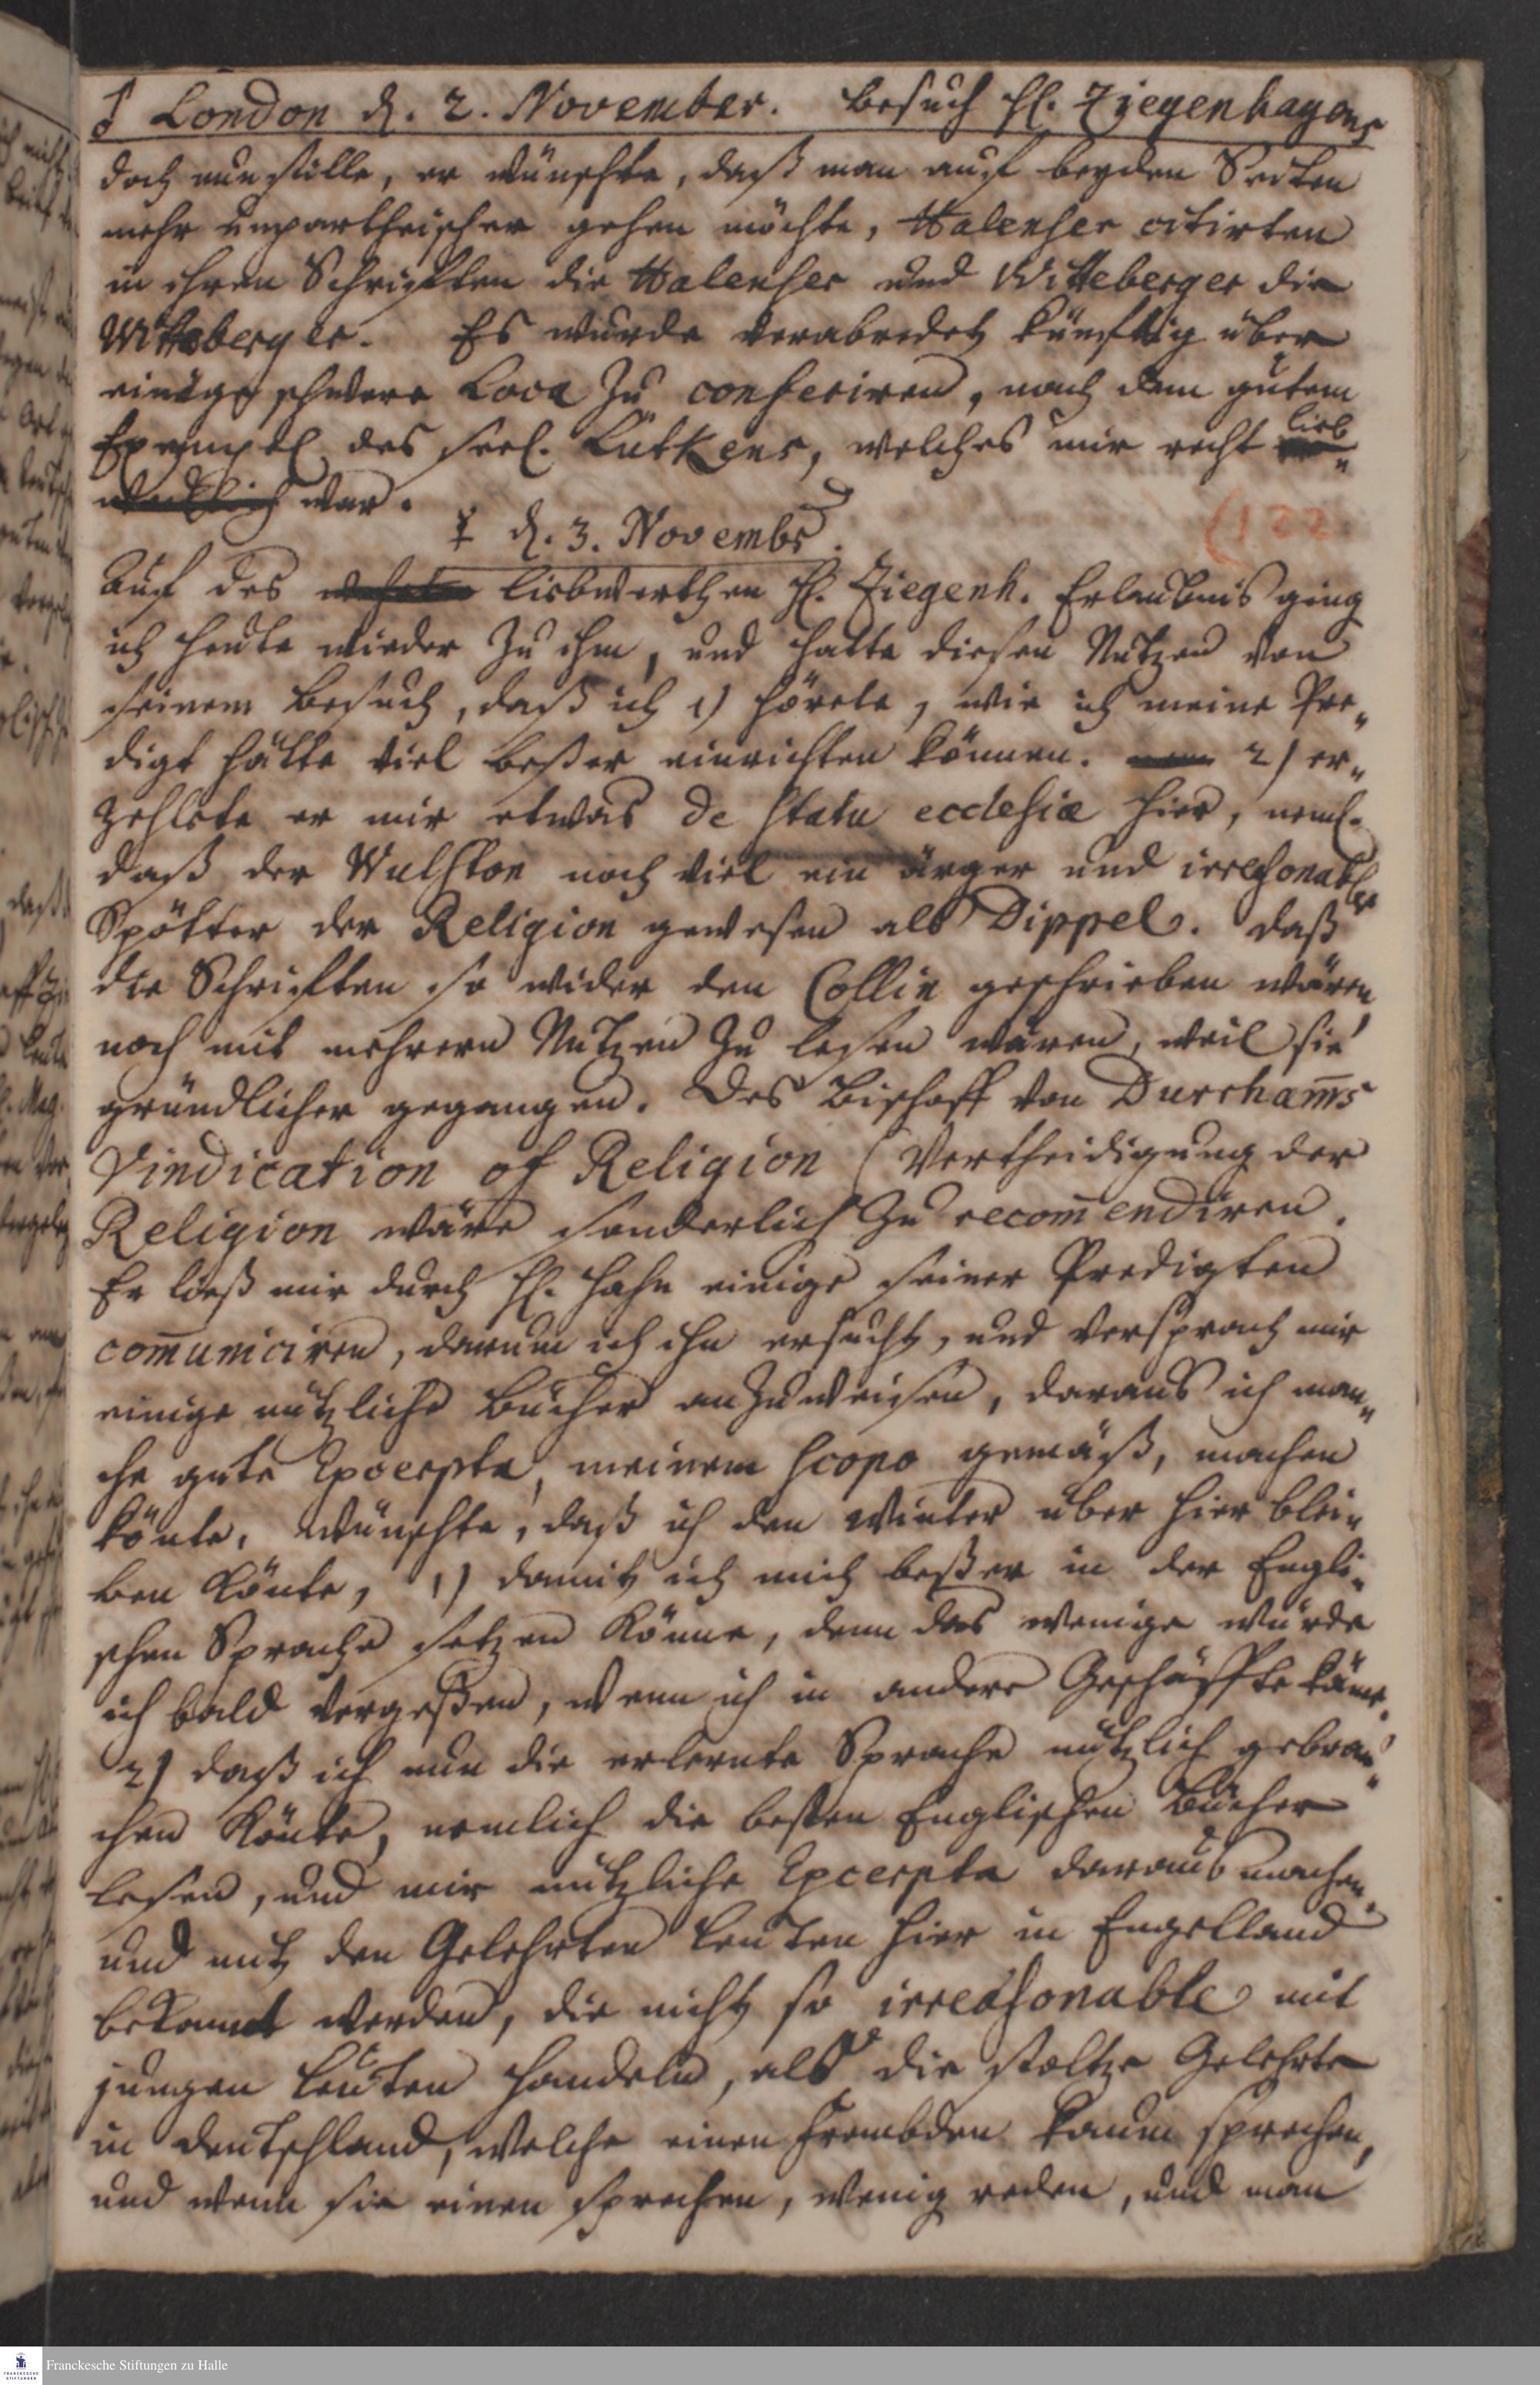 ♂ London d. 2. November. Besuch H. Ziegenhagens
doch nun stille, er wünschte, daß man auf beyden Seiten
mehr unpartheischer gehen möchte, Halenser citirten
in ihren Schrifften die Halenser und Witteberger die
Witteberger. Es wurde verabredet künfftig über
einige schwere Loca zu conferiren, nach dem gutem
Exempel des seel. Lütkens, welches mir recht lieb
war.
☿ d. 3. Novembr.
(122
Auf des liebwerthen H. Ziegenh. Erlaubnis ging
ich heute wieder zu ihm, und hatte diesen Nutzen von
seinem Besuch, daß ich 1) hörete, wie ich meine Pre„
digt hätte viel beßer einrichten können. 2) er„
zehlete er mir etwas de statu ecclesiæ hier, neml.
daß der Wulston noch viel ein ärger und irresonabler
Spötter der Religion gewesen als Dippel. daß
die Schrifften so wider den Collin geschrieben wären,
noch mit mehrern Nutzen zu lesen wären, weil sie
gründlicher gegangen. Des Bischoff von Durcham̄s
Vindication of Religion (Vertheidigung der
Religion wäre sonderlich zu recom̄endiren.
Er ließ mir durch H. Hahn einige seiner Predigten
com̄uniciren, darum ich ihn ersucht, und versprach mir
einige nützliche Bücher anzuweisen, daraus ich man„
che gute Excerpta, meinem scopo gemäß, machen
könte. wünschte, daß ich den Winter über hier blei„
ben könte, 1) damit ich mich beßer in der Engli„
schen Sprache setzen könne, denn das wenige würde
ich bald vergeßen, wenn ich in andere Geschäffte käme.
2) daß ich nun die erlernte Sprache nützlich gebrau„
chen könte, nemlich die besten Englischen Bücher
lesen, und mir nützliche Excerpta daraus machen,
und mit den Gelehrten Leuten hier in Engelland
bekannt werden, die nicht so irreasonable mit
jungen Leuten handeln, als die stoltze Gelehrte
in Deutschland, welche einen frembden kaum sprechen,
und wenn sie einen sprechen, wenig reden, und man
Franckesche Stiftungen zu Halle